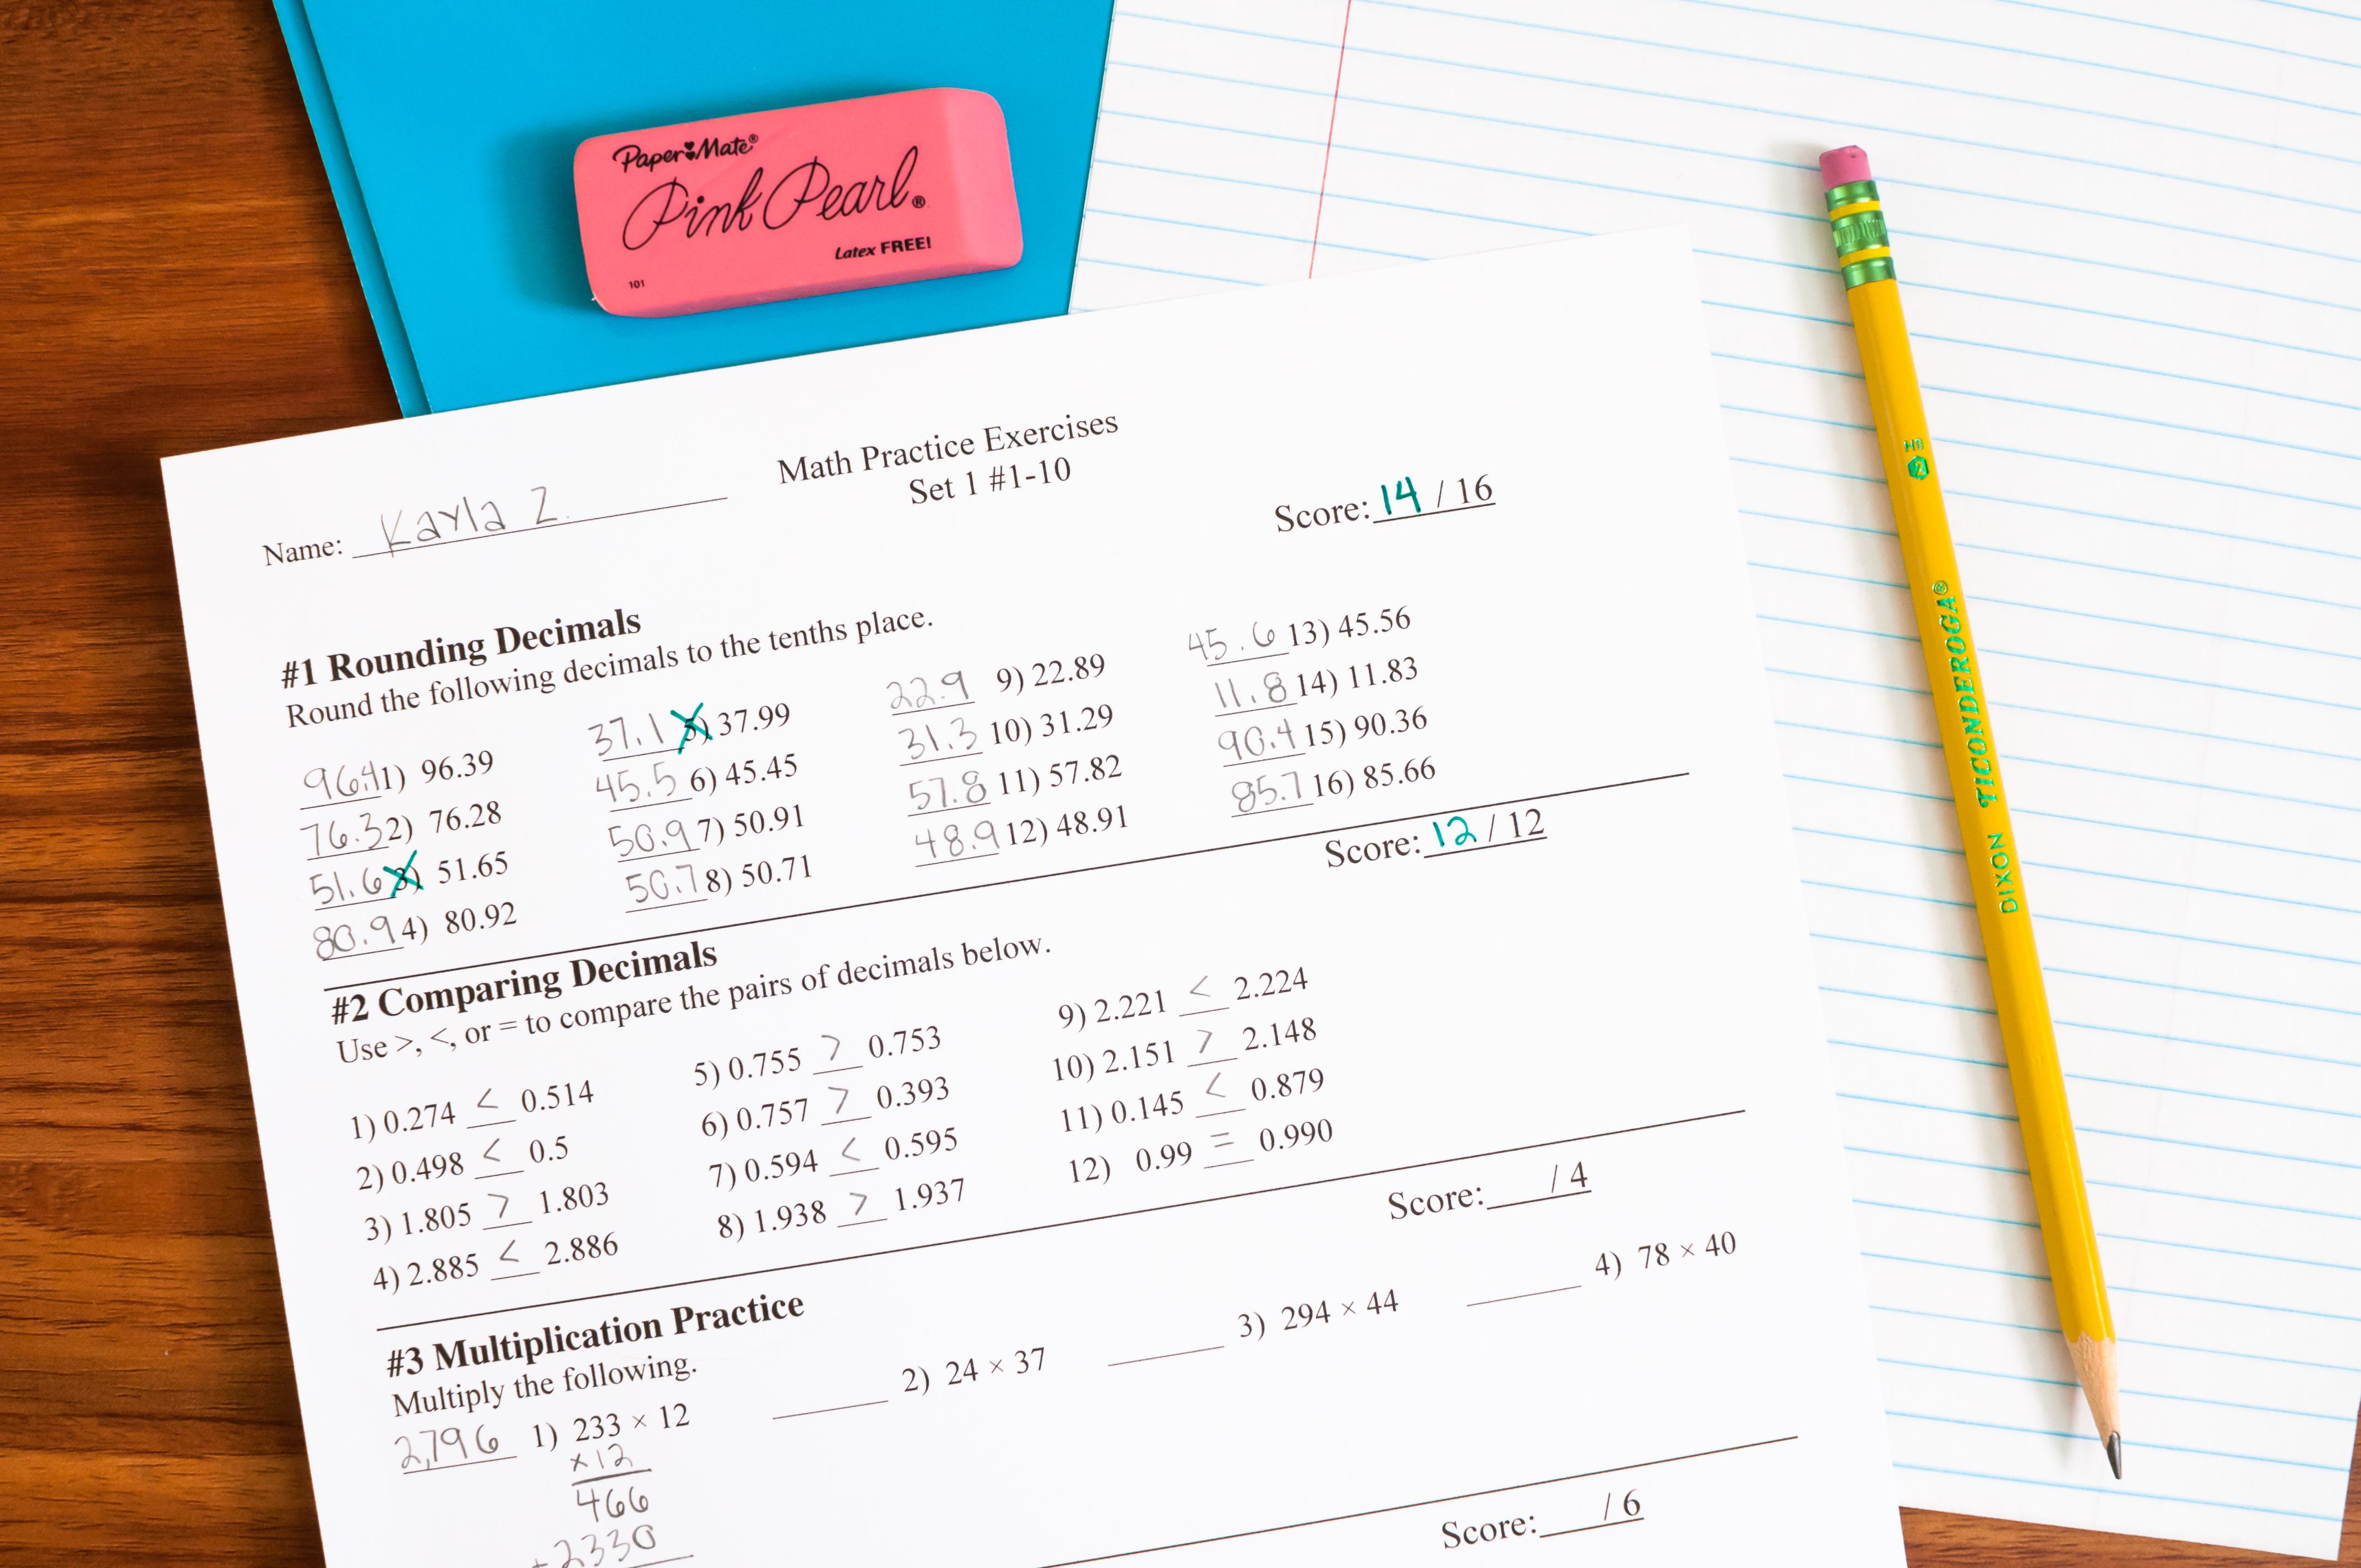 Paper Mate®
Pink Pearl®
Latex FREE!
101
HB
2
DIXON TICONDEROGA®
Math Practice Exercises
Set 1 #1-10
Name: Kayla Z.
Score: 14 / 16
#1 Rounding Decimals
Round the following decimals to the tenths place.
96.4 1) 96.39
76.3 2) 76.28
51.6 3) 51.65
80.9 4) 80.92
37.1 5) 37.99
45.5 6) 45.45
50.9 7) 50.91
50.7 8) 50.71
22.9 9) 22.89
31.3 10) 31.29
57.8 11) 57.82
48.9 12) 48.91
45.6 13) 45.56
11.8 14) 11.83
90.4 15) 90.36
85.7 16) 85.66
Score: 12 / 12
#2 Comparing Decimals
Use >, <, or = to compare the pairs of decimals below.
1) 0.274 < 0.514
2) 0.498 < 0.5
3) 1.805 > 1.803
4) 2.885 < 2.886
5) 0.755 > 0.753
6) 0.757 > 0.393
7) 0.594 < 0.595
8) 1.938 > 1.937
9) 2.221 < 2.224
10) 2.151 > 2.148
11) 0.145 < 0.879
12) 0.99 = 0.990
Score: / 4
#3 Multiplication Practice
Multiply the following.
2,796 1) 233 × 12
×12
466
+2330
2) 24 × 37
3) 294 × 44
4) 78 × 40
Score: / 6